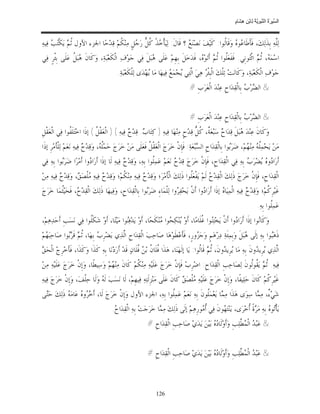 السيرة النبوية لابن هشام
لِلّهِ بِذَلِكَ، فَأَطَاعُوهُ وَقَالُوا كَيْفَ نَصْنَعُ ؟ قَالَ لِيَأْخُذْ كُلُّ رَجُلٍ مِنْكُمْ قِدْحًا الجزء الأول ثُمَّ يَكْتُبُ فِيهِ
اسْمَهُ، ثُمَّ ائْتُونِي فَفَعَلُوا ثُمَّ أَتَوْهُ، فَدَخَلَ بِهِمْ عَلَى هُبَلَ فِي جَوْفِ الْكَعْبَةِ، وَكَانَ هُبَلُ عَلَى بِئْرٍ فِي
جَوْفِ الْكَعْبَةِ، وَكَانَتْ تِلْكَ الْبِئْرُ هِيَ الَّتِي يُجْمَعُ فِيهَا مَا يُهْدَى لِلْكَعْبَةِ
& الضَّرْبُ بِالْقِدَاحِ عِنْدَ الْعَرَبِ #
& الضَّرْبُ بِالْقِدَاحِ عِنْدَ الْعَرَبِ #
وَكَانَ عِنْدَ هُبَلَ قِدَاحٌ سَبْعَةٌ، كُلُّ قِدْحٍ مِنْهَا فِيهِ ( كِتَابٌ قِدْحٌ فِيهِ ) ( الْعَقْلُ ) إذَا اخْتَلَفُوا فِي الْعَقْلِ
مَنْ يَحْمِلُهُ مِنْهُمْ، ضَرَبُوا بِالْقِدَاحِ السَّبْعَةِ فَإِنْ خَرَجَ الْعَقْلُ فَعَلَى مَنْ خَرَجَ حَمْلُهُ، وَقِدْحٌ فِيهِ نَعَمْ لِلْأَمْرِ إذَا
أَرَادُوهُ يُضْرَبُ بِهِ فِي الْقِدَاحِ، فَإِنْ خَرَجَ قِدْحُ نَعَمْ عَمِلُوا بِهِ، وَقِدْحٌ فِيهِ لَا إذَا أَرَادُوا أَمْرًا ضَرَبُوا بِهِ فِي
الْقِدَاحِ، فَإِنْ خَرَجَ ذَلِكَ الْقِدْحُ لَمْ يَفْعَلُوا ذَلِكَ الْأَمْرَ، وَقِدْحٌ فِيهِ مِنْكُمْ؛ وَقِدْحٌ فِيهِ مُلْصَقٌ، وَقِدْحٌ فِيهِ مِنْ
غَيْرِكُمْ؛ وَقِدْحٌ فِيهِ الْمِيَاهُ إذَا أَرَادُوا أَنْ يَحْفِرُوا لِلْمَاءِ ضَرَبُوا بِالْقِدَاحِ، وَفِيهَا ذَلِكَ الْقِدْحُ، فَحَيْثُمَا خَرَجَ
عَمِلُوا بِهِ
وَكَانُوا إذَا أَرَادُوا أَنْ يَخْتِنُوا غُلَامًا، أَوْ يُنْكِحُوا مُنْكَحًا، أَوْ يَدْفِنُوا مَيِّتًا، أَوْ شَكُّوا فِي نَسَبِ أَحَدِهِمْ،
ذَهَبُوا بِهِ إلَى هُبَلَ وَبِمِئَةِ دِرْهَمٍ وَجَزُورٍ، فَأَعْطَوْهَا صَاحِبَ الْقِدَاحِ الَّذِي يَضْرِبُ بِهَا، ثُمَّ قَرَّبُوا صَاحِبَهُمْ
الَّذِي يُرِيدُونَ بِهِ مَا يُرِيدُونَ، ثُمَّ قَالُوا: يَا إلَهَنَا، هَذَا فُلَانُ بْنُ فُلَانٍ قَدْ أَرَدْنَا بِهِ كَذَا وَكَذَا، فَأَخْرِجْ الْحَقَّ
فِيهِ ثُمَّ يَقُولُونَ لِصَاحِبِ الْقِدَاحِ اضْرِبْ فَإِنْ خَرَجَ عَلَيْهِ مِنْكُمْ كَانَ مِنْهُمْ وَسِيطًا، وَإِنْ خَرَجَ عَلَيْهِ مِنْ
غَيْرِكُمْ كَانَ حَلِيفًا، وَإِنْ خَرَجَ عَلَيْهِ مُلْصَقٌ كَانَ عَلَى مَنْزِلَتِهِ فِيهِمْ، لَا نَسَبَ لَهُ وَلَا حِلْفَ، وَإِنْ خَرَجَ فِيهِ
شَيْءٌ، مِمَّا سِوَى هَذَا مِمَّا يَعْمَلُونَ بِهِ نَعَمْ عَمِلُوا بِهِ، الجزء الأول وَإِنْ خَرَجَ لَا، أَخَّرُوهُ عَامَهُ ذَلِكَ حَتَّى
يَأْتُوهُ بِهِ مَرَّةً أُخْرَى، يَنْتَهُونَ فِي أُمُورِهِمْ إلَى ذَلِكَ مِمَّا خَرَجَتْ بِهِ الْقِدَاحُ
& عَبْدُ الْمُطَّلِبِ وَأَوْلَادُهُ بَيْنَ يَدَيْ صَاحِبِ الْقِدَاحِ #
& عَبْدُ الْمُطَّلِبِ وَأَوْلَادُهُ بَيْنَ يَدَيْ صَاحِبِ الْقِدَاحِ #
126